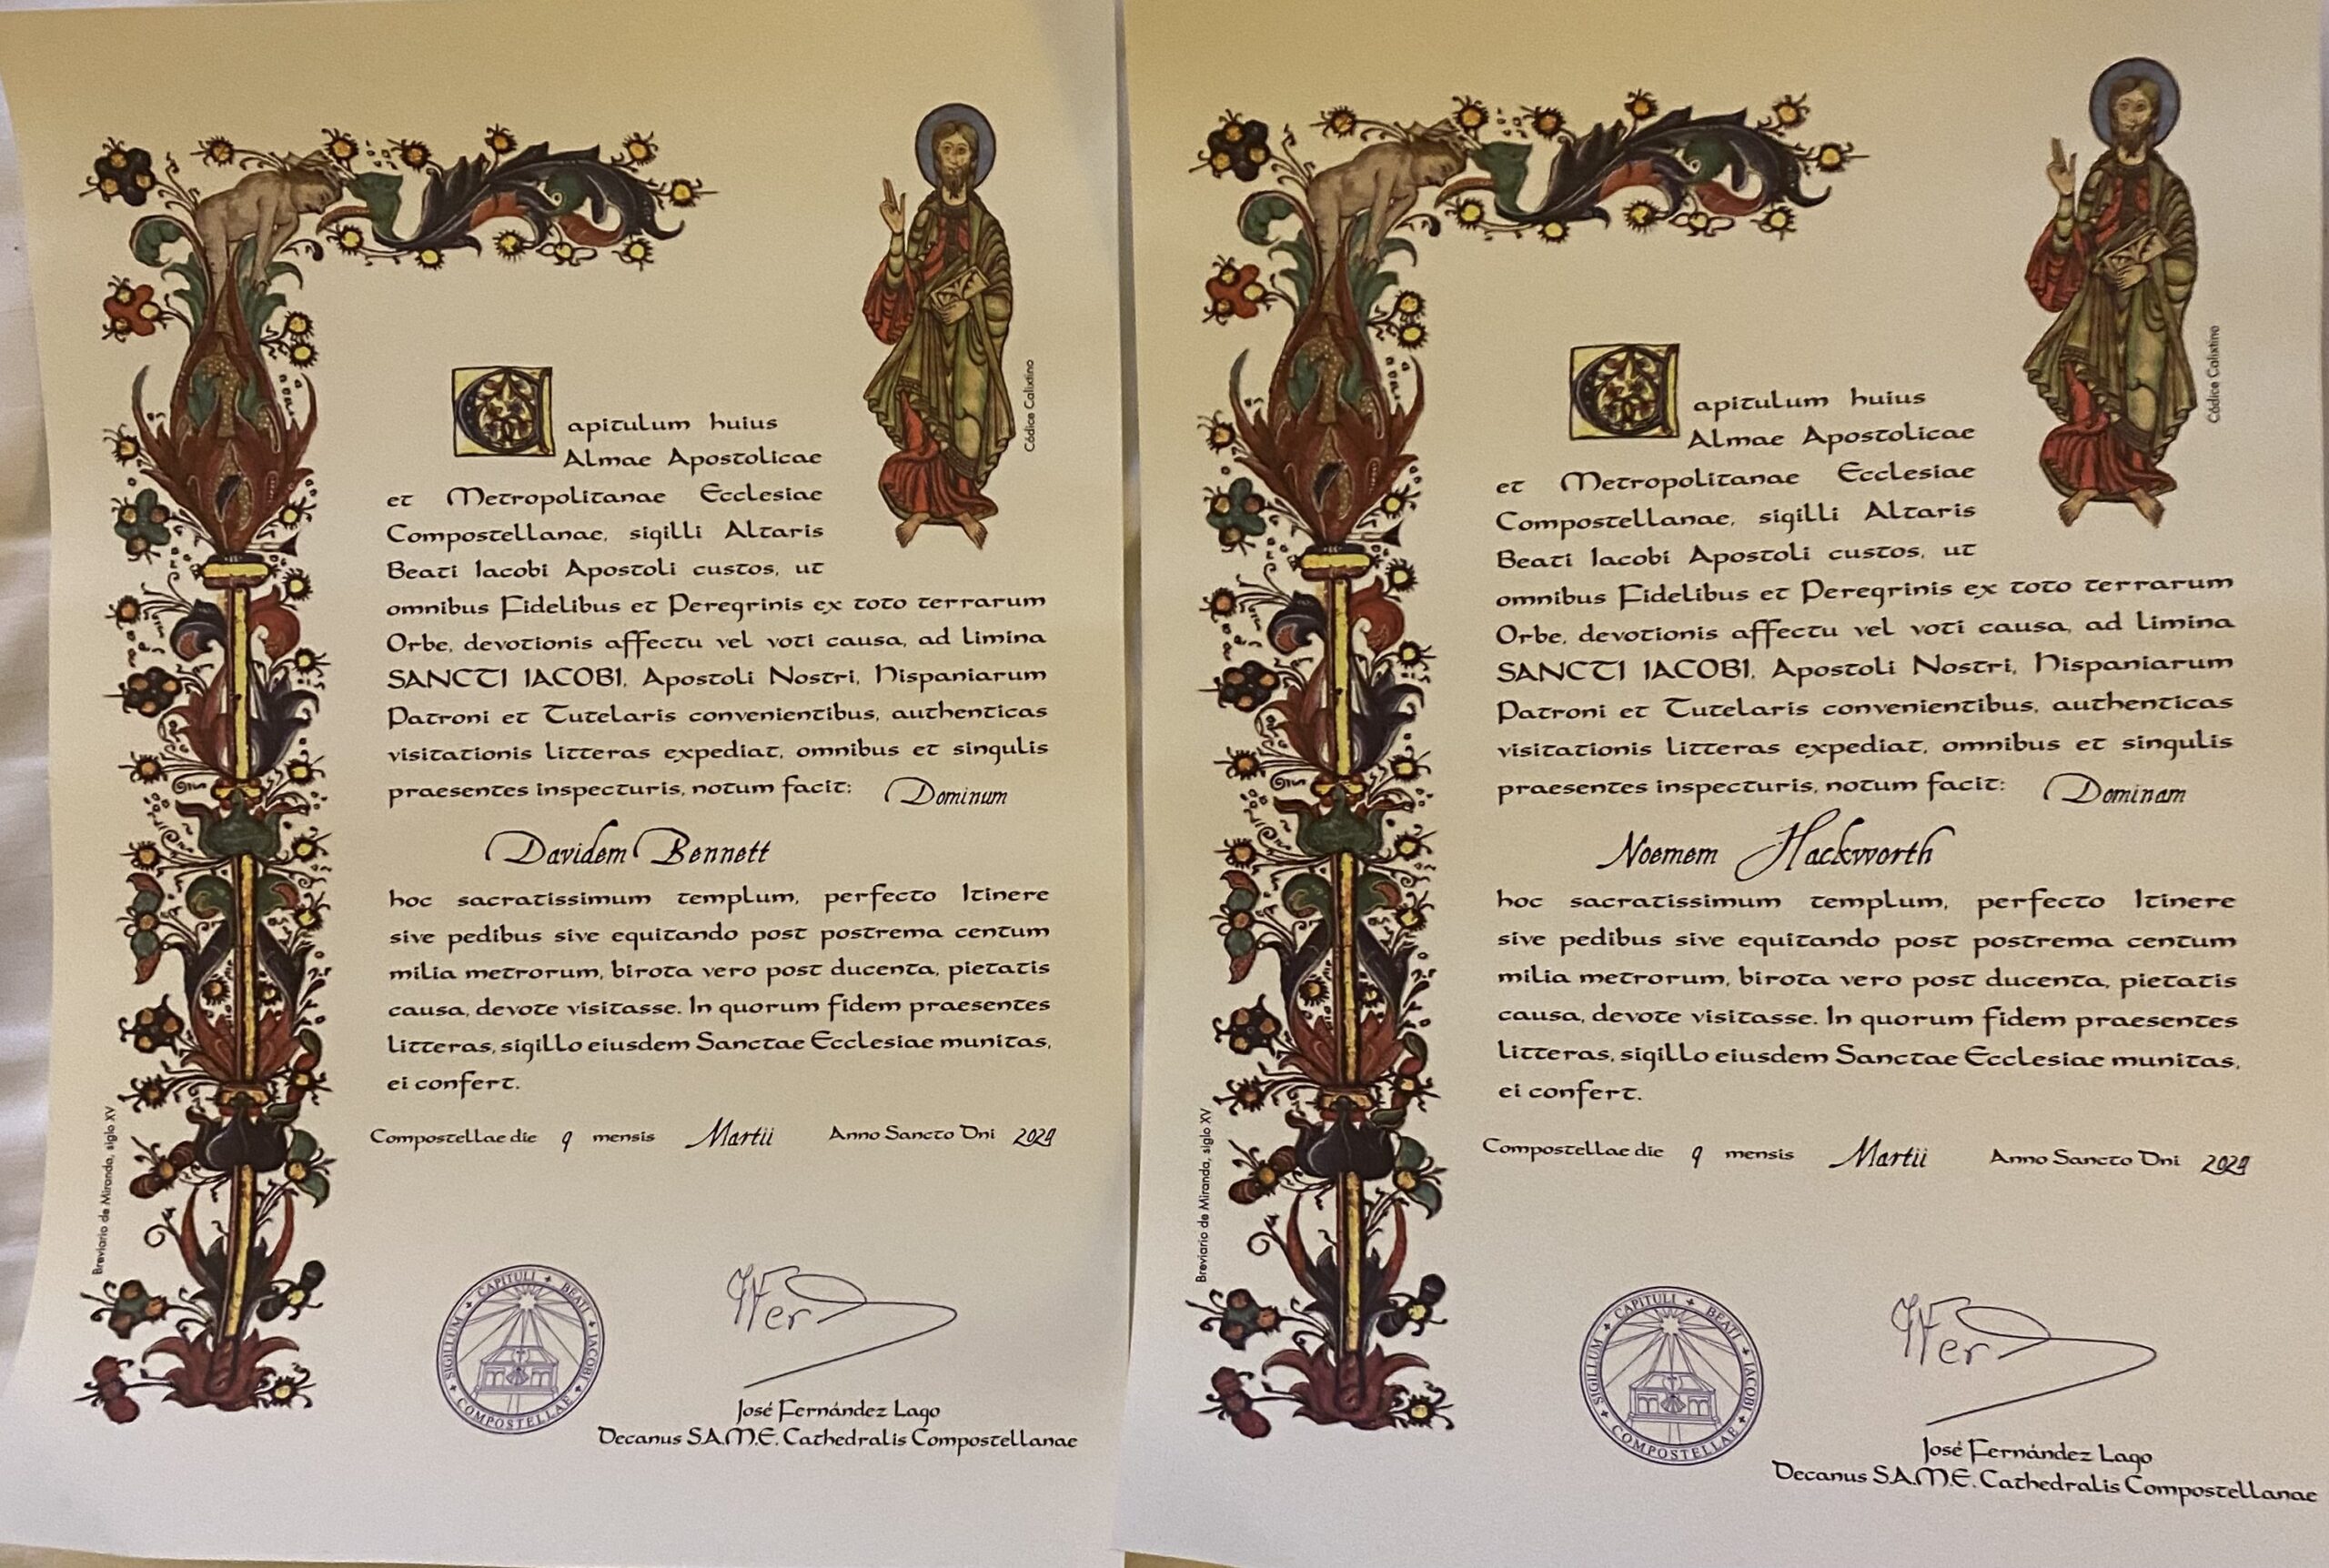 Códice Calixtino
Capitulum huius
Almae Apostolicae
et Metropolitanae Ecclesiae
Compostellanae, sigilli Altaris
Beati Iacobi Apostoli custos, ut
omnibus Fidelibus et Peregrinis ex toto terrarum
Orbe, devotionis affectu vel voti causa, ad limina
SANCTI IACOBI, Apostoli Nostri, Hispaniarum
Patroni et Tutelaris convenientibus, authenticas
visitationis litteras expediat, omnibus et singulis
praesentes inspecturis, notum facit: Dominum
Davidem Bennett
hoc sacratissimum templum, perfecto Itinere
sive pedibus sive equitando post postrema centum
milia metrorum, birota vero post ducenta, pietatis
causa, devote visitasse. In quorum fidem praesentes
litteras, sigillo eiusdem Sanctae Ecclesiae munitas,
ei confert.
Compostellae die 9 mensis Martii Anno Sancto Dni
Breviario de Miranda, siglo XV
SIGILLUM + CAPITULI + BEATI + IACOBI + COMPOSTELLAE +
José Fernández Lago
Decanus S.A.M.E. Cathedralis Compostellanae
Códice Calixtino
Capitulum huius
Almae Apostolicae
et Metropolitanae Ecclesiae
Compostellanae, sigilli Altaris
Beati Iacobi Apostoli custos, ut
omnibus Fidelibus et Peregrinis ex toto terrarum
Orbe, devotionis affectu vel voti causa, ad limina
SANCTI IACOBI, Apostoli Nostri, Hispaniarum
Patroni et Tutelaris convenientibus, authenticas
visitationis litteras expediat, omnibus et singulis
praesentes inspecturis, notum facit: Dominam
Noemem Hackworth
hoc sacratissimum templum, perfecto Itinere
sive pedibus sive equitando post postrema centum
milia metrorum, birota vero post ducenta, pietatis
causa, devote visitasse. In quorum fidem praesentes
litteras, sigillo eiusdem Sanctae Ecclesiae munitas,
ei confert.
Compostellae die 9 mensis Martii Anno Sancto Dni
Breviario de Miranda, siglo XV
SIGILLUM + CAPITULI + BEATI + IACOBI + COMPOSTELLAE +
José Fernández Lago
Decanus S.A.M.E. Cathedralis Compostellanae